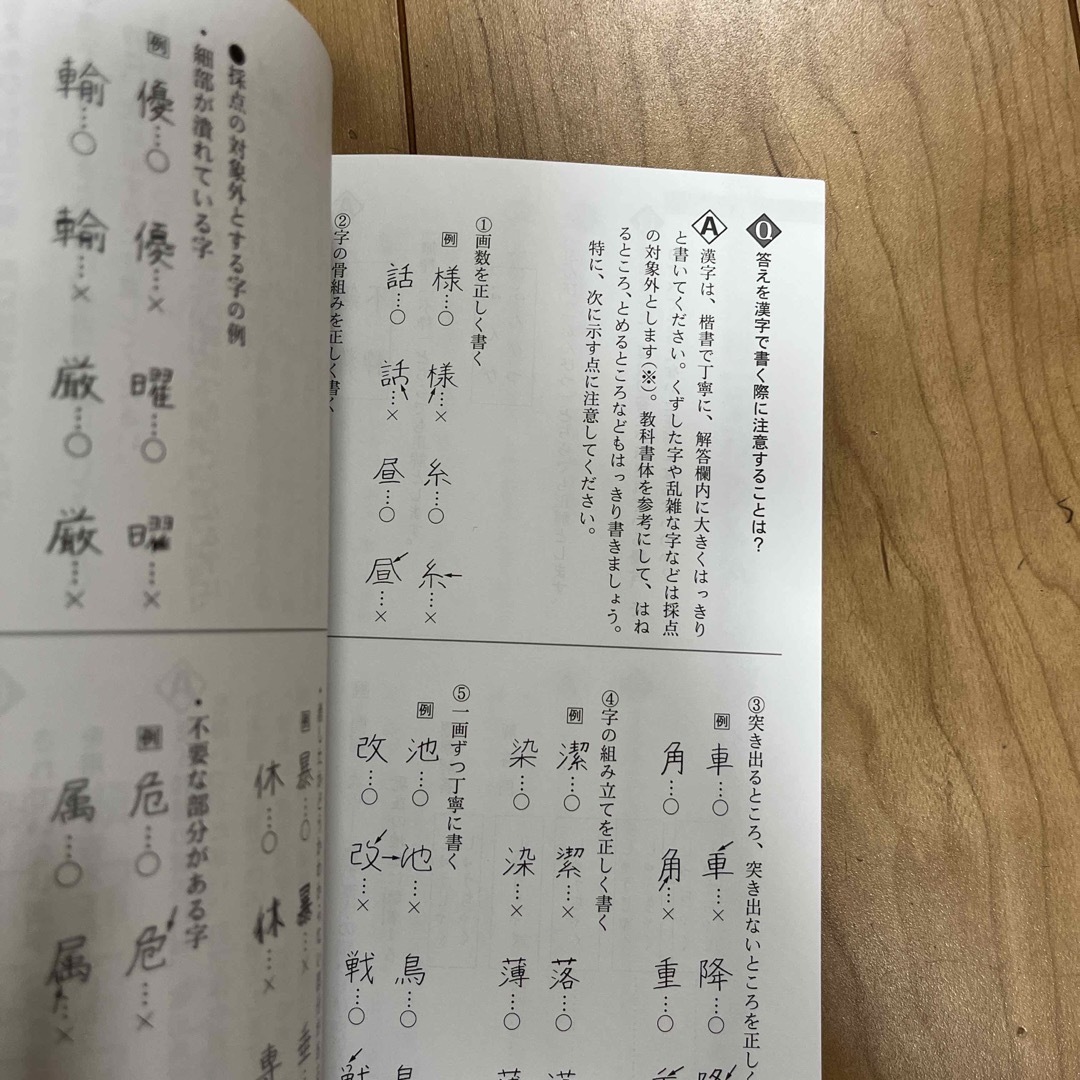 Q 答えを漢字で書く際に注意することは？
A 漢字は、楷書で丁寧に、解答欄内に大きくはっきり
と書いてください。くずした字や乱雑な字などは採点
の対象外とします(※)。教科書体を参考にして、はね
るところ、とめるところなどもはっきり書きましょう。
特に、次に示す点に注意してください。
①画数を正しく書く
例 様…○ 様…× 糸…○ 糸…×
話…○ 話…× 昼…○ 昼…×
②字の骨組みを正しく書く
③突き出るところ、突き出ないところを正しく
例 車…○ 車…× 降…○ 降
角…○ 角…× 重…○ 重
④字の組み立てを正しく書く
例 潔…○ 潔…× 落…○ 落
染…○ 染…× 薄…○ 薄
⑤一画ずつ丁寧に書く
例 池…○ 池…× 鳥…○ 鳥
改…○ 改…× 戦…○ 戦
●採点の対象外とする字の例
・細部が潰れている字
例 優…○ 優…× 曜…○ 曜…×
輸…○ 輸…× 厳…○ 厳…×
例 暴…○ 暴…×
休…○ 休…× 専
・不要な部分がある字
例 危…○ 危…×
属…○ 属…×